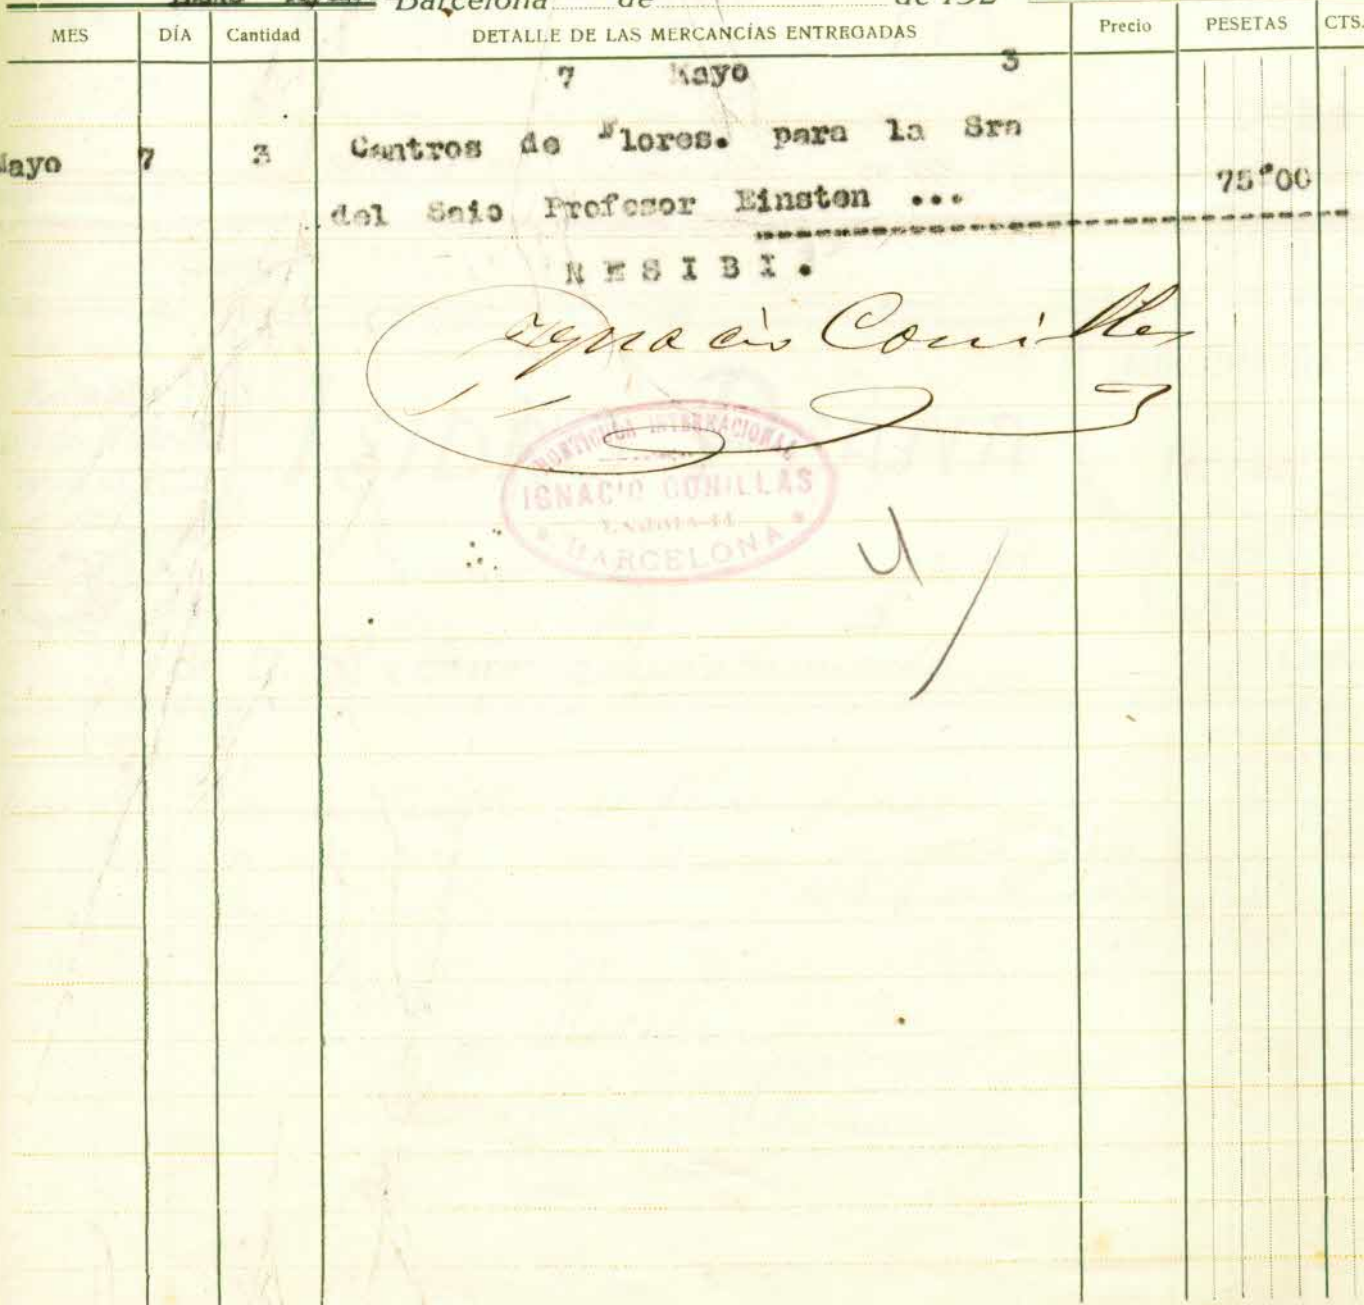 Barcelona de de 192
MES DÍA Cantidad DETALLE DE LAS MERCANCÍAS ENTREGADAS Precio PESETAS CTS.
7 Mayo 3
Mayo 7 3 Centros de Flores. para la Sra
del Saio Profesor Einsten ... 75'00
RESIBI.
Ygnacio Conillas
HORTICOLA INTERNACIONAL
IGNACIO CONILLAS
BARCELONA